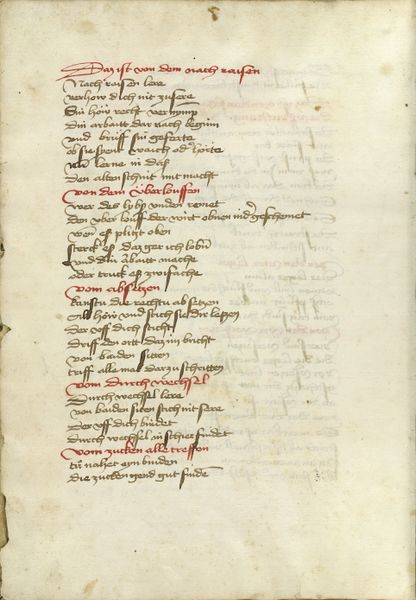 Daz ist von dem nach raisen
Nach raisen lere
verhow dich nit zu sere
Sin höw recht vernym
Din arbaitt dar nach beginn
vnd brüff sin geferte
ob sie sient waich oder hörte
lerne in daß
den alten schnit mit macht
Von dem Überlouffen
wer des lybs vnden remet
den vber louff der wirt oben geschemet
wen es plitzt oben
sterck es daz ger ich lobñ
vnd din Arbaitt mache
oder truck es zwifache
vom absetzen
kanstu die rechten ab setzen
All höw vnd stich sie dir letzen
der vff dich sticht
Driff den ort daz im bricht
von baiden sitten
triff alle mal dar zu schritten
vom durch wechsel
Durch wechsel lere
von baiden siten stich mit sere
der vff dich bindet
durch wechsel in schier findet
Vom zucken alle treffen
nahet eyn binden
die zucken gend gut finde